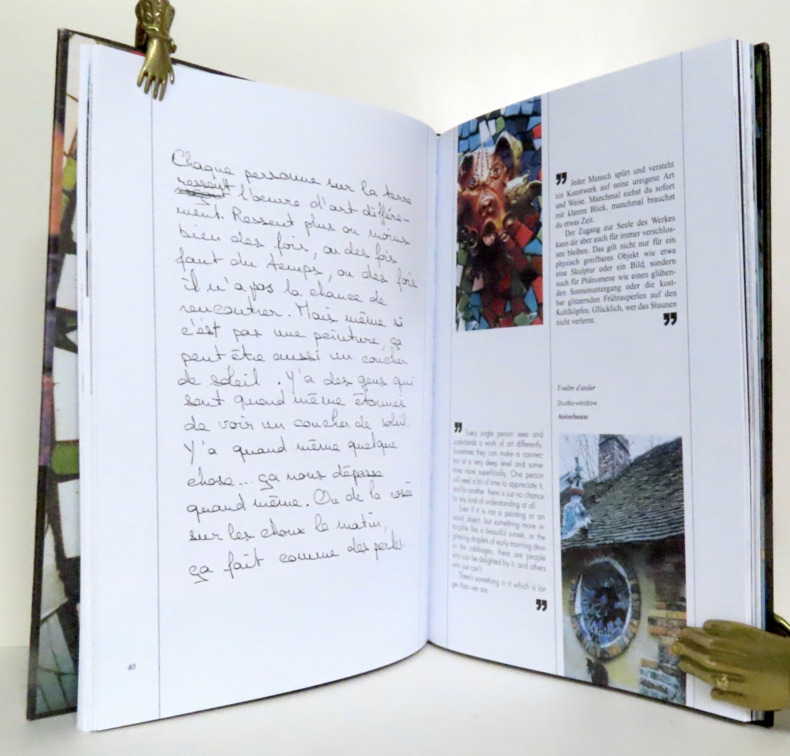 Chaque personne sur la terre
ressent l'oeuvre d'art différe-
ment. Ressent plus ou moins
bien des fois, ou des fois
faut du temps, ou des fois
il n'a pas la chance de
rencontrer. Mais même si
c'est pas une peinture, ça
peut être aussi un coucher
de soleil. Y'a des gens qui
sont quand même étonnés
de voir un coucher de soleil.
Y'a quand même quelque
chose... ça nous dépasse
quand même. Ou de la rosée
sur les choux le matin,
ça fait comme des perles
40
" Jeder Mensch spürt und versteht
ein Kunstwerk auf seine ureigene Art
und Weise. Manchmal siehst du sofort
mit klarem Blick, manchmal brauchst
du etwas Zeit.
Der Zugang zur Seele des Werkes
kann dir aber auch für immer verschlos-
sen bleiben. Das gilt nicht nur für ein
physisch greifbares Objekt wie etwa
eine Skulptur oder ein Bild, sondern
auch für Phänomene wie einen glühen-
den Sonnenuntergang oder die kost-
bar glitzernden Frühtauperlen auf den
Kohlköpfen. Glücklich, wer das Staunen
nicht verlernt. "
Fenêtre d'atelier
Studio-window
Atelierfenster
" Every single person sees and
understands a work of art differently.
Sometimes they can make a connec-
tion at a very deep level and some-
times more superficially. One person
will need a bit of time to appreciate it,
and for another there is just no chance
for any kind of understanding at all.
Even if it is not a painting or an
visual object, but something more in-
tangible like a beautiful sunset, or the
glittering droplets of early morning dew
on the cabbages, there are people
who can be delighted by it, and others
who just can't.
There's something in it which is lar-
ger than we are. "